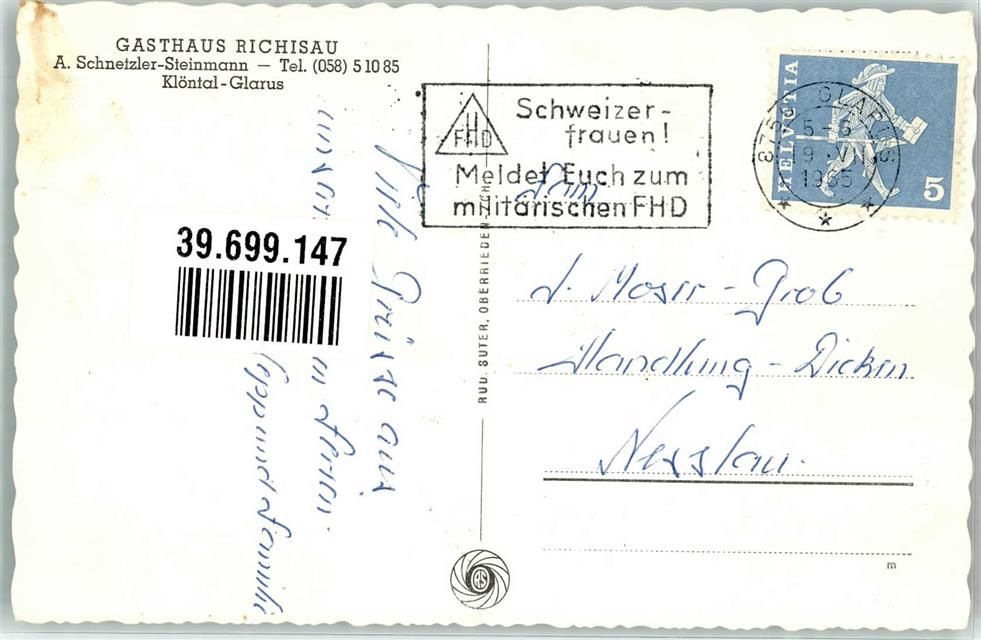 GASTHAUS RICHISAU
A. Schnetzler-Steinmann — Tel. (058) 5 10 85
Klöntal - Glarus
FHD
Schweizer-
frauen!
Meldet Euch zum
militärischen FHD
HELVETIA
5
8750 GLARUS
1965
39.699.147
Viele Grüsse aus
unser
Fam.
J. Moser - Grob
Handlung - Dicken
Nesslau.
RUD. SUTER, OBERRIEDEN-ZCH.
RS
m